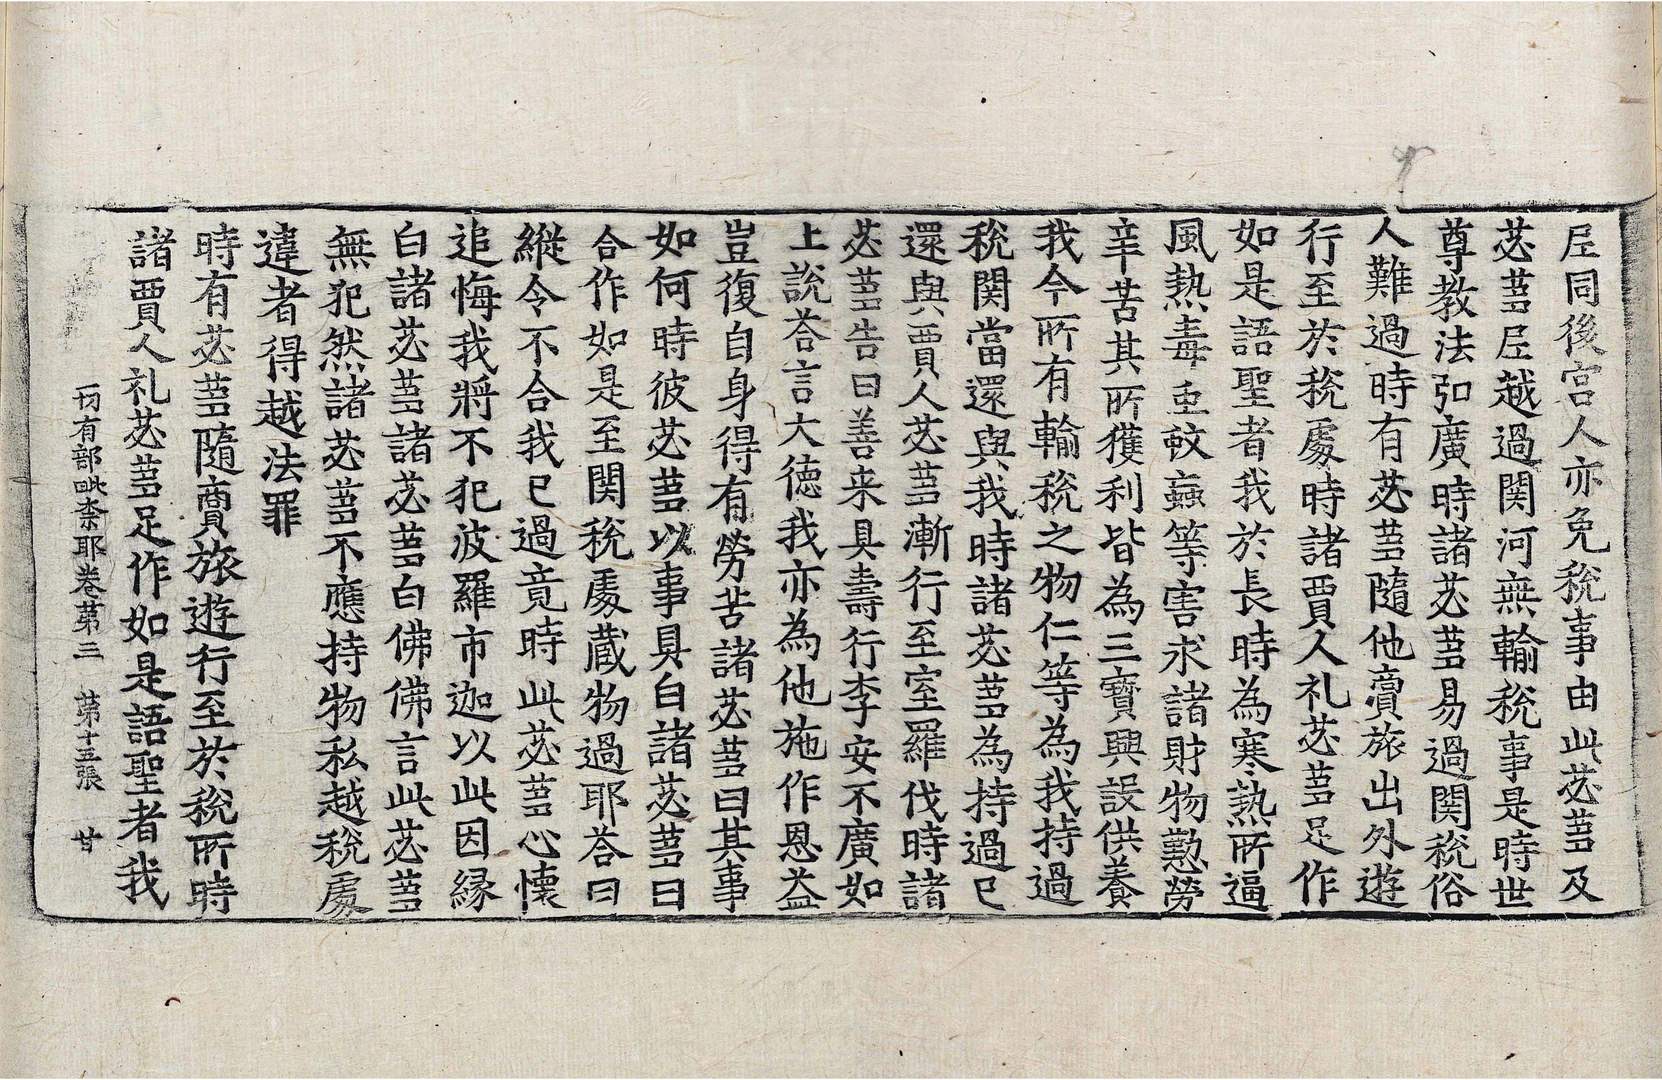 尼同後宮人亦免稅事由此苾蒭及
苾蒭尼越過関河無輸稅事是時世
尊教法弘廣時諸苾蒭易過関稅俗
人難過時有苾蒭隨他賣旅出外遊
行至於稅處時諸賈人礼苾蒭足作
如是語聖者我於長時為寒熱所逼
風熱毒䖝蚊蝱等害求諸財物懃勞
辛苦其所獲利皆為三寶興設供養
我今所有輸稅之物仁等為我持過
稅関當還與我時諸苾蒭為持過已
還與賈人苾蒭漸行至室羅伐時諸
苾蒭告曰善来具壽行李安不廣如
上說荅言大德我亦為他施作恩益
豈復自身得有勞苦諸苾蒭曰其事
如何時彼苾蒭以事具白諸苾蒭曰
合作如是至関稅處蔵物過耶荅曰
縱令不合我已過竟時此苾蒭心懷
追悔我將不犯波羅市迦以此因緣
白諸苾蒭諸苾蒭白佛佛言此苾蒭
無犯然諸苾蒭不應持物私越稅處
違者得越法罪
時有苾蒭隨商旅遊行至於稅所時
諸賈人礼苾蒭足作如是語聖者我
一切有部毗奈耶卷苐三　苐十五張　甘